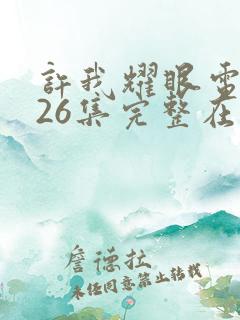 許我耀眼電
26集完整在
詹德拉
未经同意禁止转载